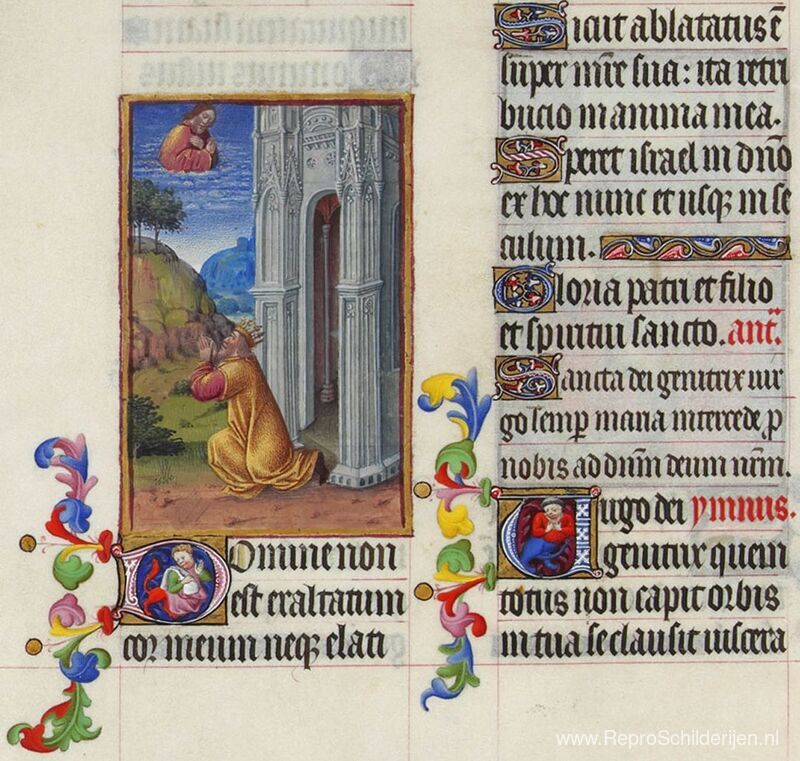 Domine non
est exaltatum
cor meum neqꝫ elati
Sicut ablatatus ē
super mr̄e sua: ita retri
bucio in anima mea.
Speret israel in dn̄o
ex hoc nunc et usqꝫ in se
culum.
Gloria patri et filio
et spiritui sancto. ant̄.
Sancta dei genitrix uir
go semꝑ maria intercede ꝓ
nobis ad dn̄m deum nr̄m.
Uirgo dei ymnus.
genitrix quem
totus non capit orbis
in tua se clausit uiscera
www.ReproSchilderijen.nl